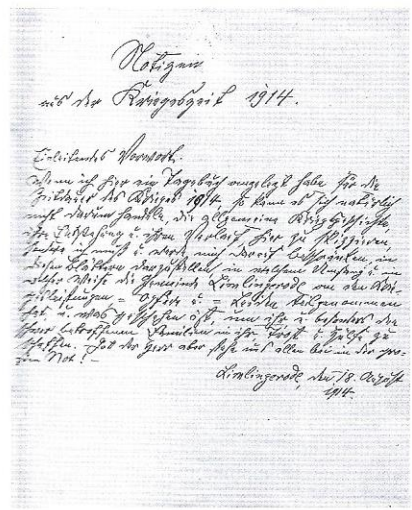 Notizen
aus der Kriegszeit 1914.
Einleitendes Vorwort.
Wenn ich hier ein Tagebuch angelegt habe für die
Zeitdauer des Krieges 1914, so kann es sich natürlich
nicht darum handeln, die allgemeine Kriegsgeschichte,
ihre Entstehung u. ihren Verlauf, hier zu skizzieren,
sondern ich muß u. werde mich darauf beschränken, in
diesen Blättern darzustellen, in welchem Umfang u. in
welcher Weise die Gemeinde Lieblingerode an den
= Opfern u. = Leiden teilgenommen
hat, u. was geschehen ist, um ihr u. besonders den
schwer betroffenen Familien in ihr Trost u. Hülfe zu
schaffen. Gott der Herr aber stehe uns allen bei in der gro-
ßen Not! —
den 18. August
1914.